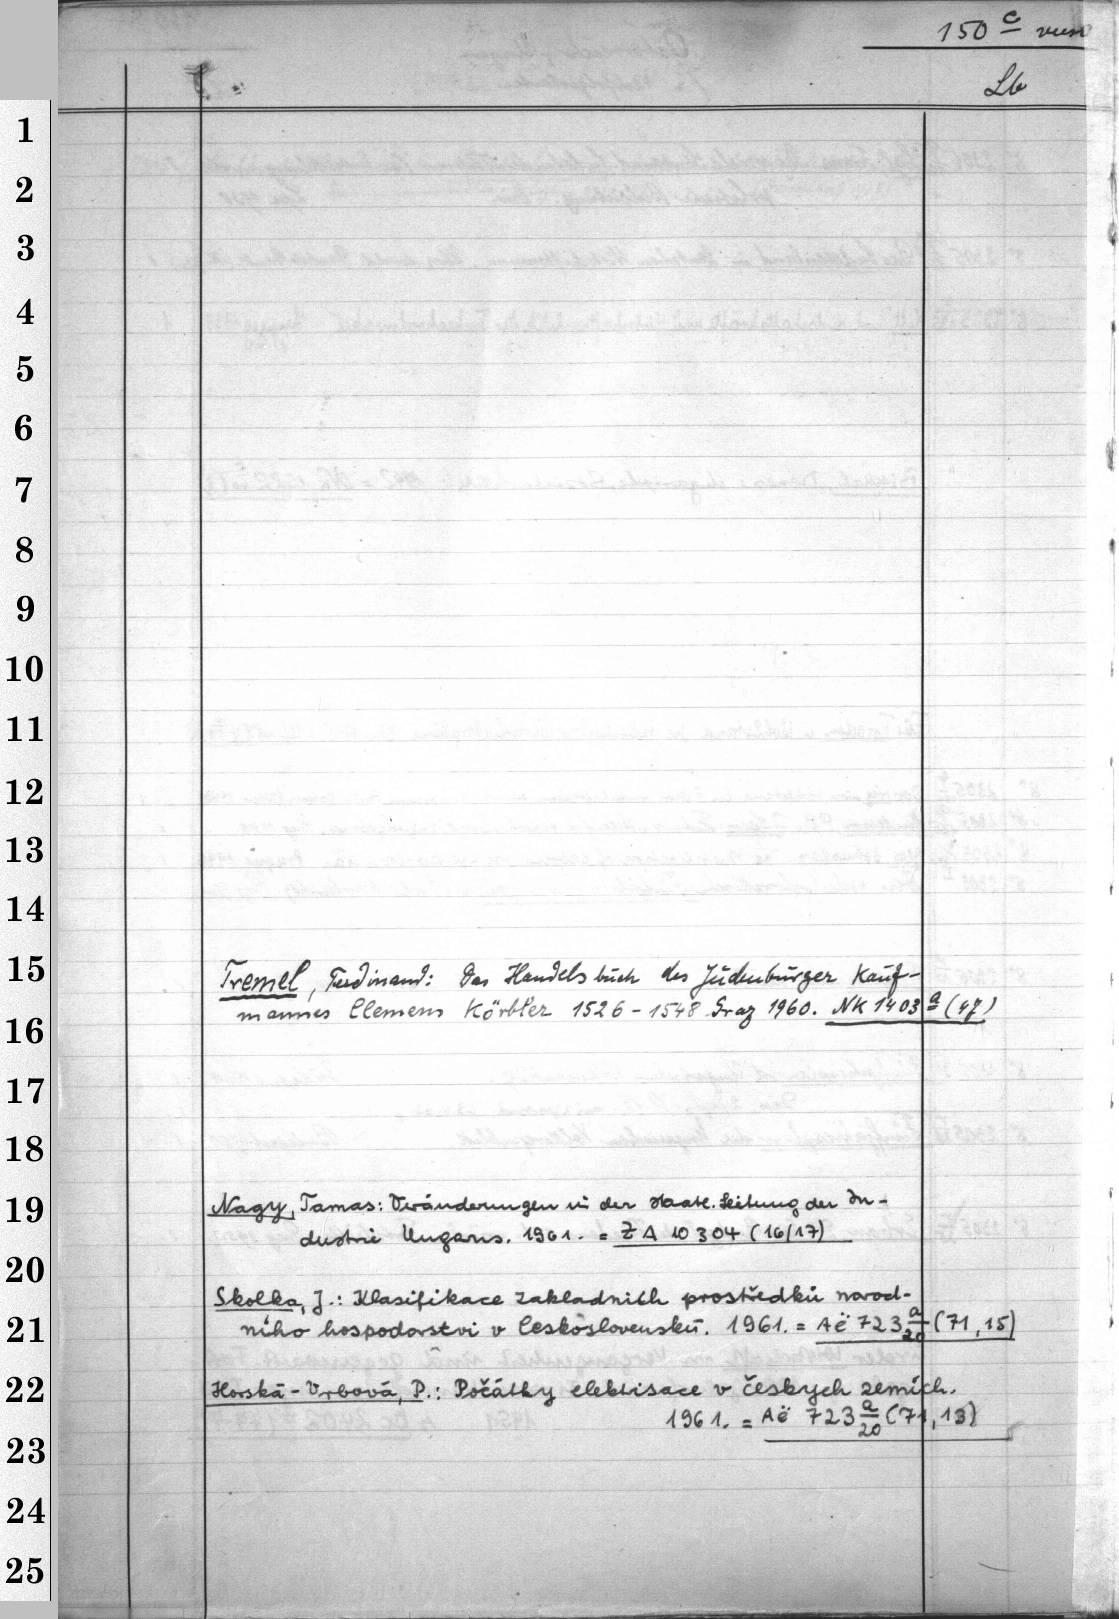 150 c
Lb
1
2
3
4
5
6
7
8
9
10
11
12
13
14
15
16
17
18
19
20
21
22
23
24
25
Tremel, Ferdinand: Das Handelsbuch des Judenburger Kauf-
mannes Clemens Körbler 1526-1548 Graz 1960. NK 1403 a (47)
Nagy, Tamas: Veränderungen in der staatl. Leitung der In-
dustrie Ungarns. 1961. = ZA 10304 (16/17)
Skolka, J.: Klasifikace zakladnich prostředků narod-
niho hospodarstvi v Československu. 1961. = Aë 723 a/20 (71,15)
Horská-Vrbová, P.: Počátky elektrisace v českych zemích.
1961. = Aë 723 a/20 (71,13)